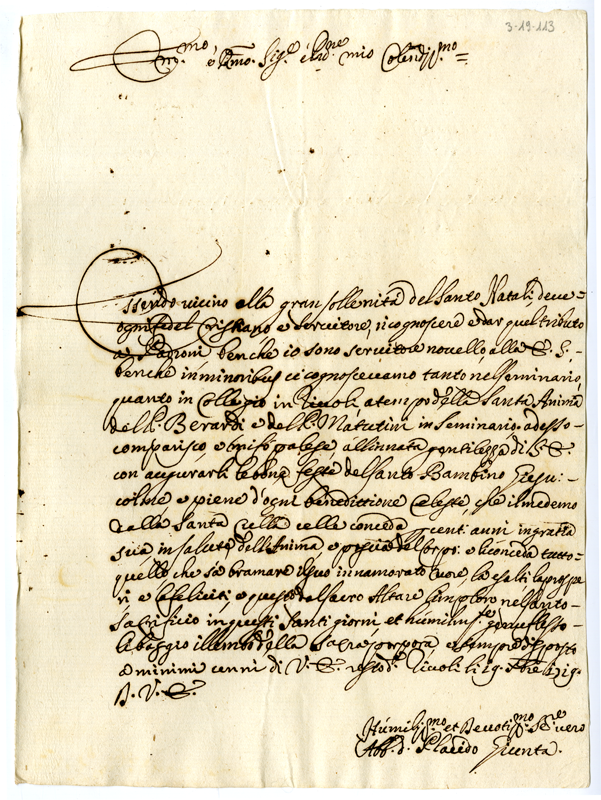 3-19-113
Em.mo, e Rmo. Sig.e e Pne mio Colendiss.mo =
Essendo vicino alla gran sollenità del Santo Natale, deve=
ogni fedel Cristiano e servitore, ricognoscere e dar quel tributo
a Padroni benche io sono servitore novello, alla E. S. -
benche in minoribus ci cognoscevamo tanto nel seminario,
quanto in Collegio in Tivoli a tempo della Santa Anima
del P. Berardi e del P. Matutini in Seminario. adesso-
comparisco, e palese, all'innata gentilezza di V. E.
con augurarli le bone feste del santo Bambino Giesu:
colme e piene d'ogni benedittione Celeste, che il medemo
dalla Santa conceda cent'anni in gratia
sua in salute dell'Anima e del corpo: e li conceda tutto-
quello che sa bramare il suo innamorato cuore, la esalti la prospe
ri e la feliciti, e questo dal sacro Altare imploro nel santo-
sacrificio in questi Santi giorni et humilm.te genuflesso-
li baggio il lembo della Sacra porpora e sempre disposto
a minimi cenni di V. E. resto. Tivoli li 19.
D. V. E.
Humiliss.mo et Devotiss.mo Se.re vero
Abb. d. Placido Giunta.